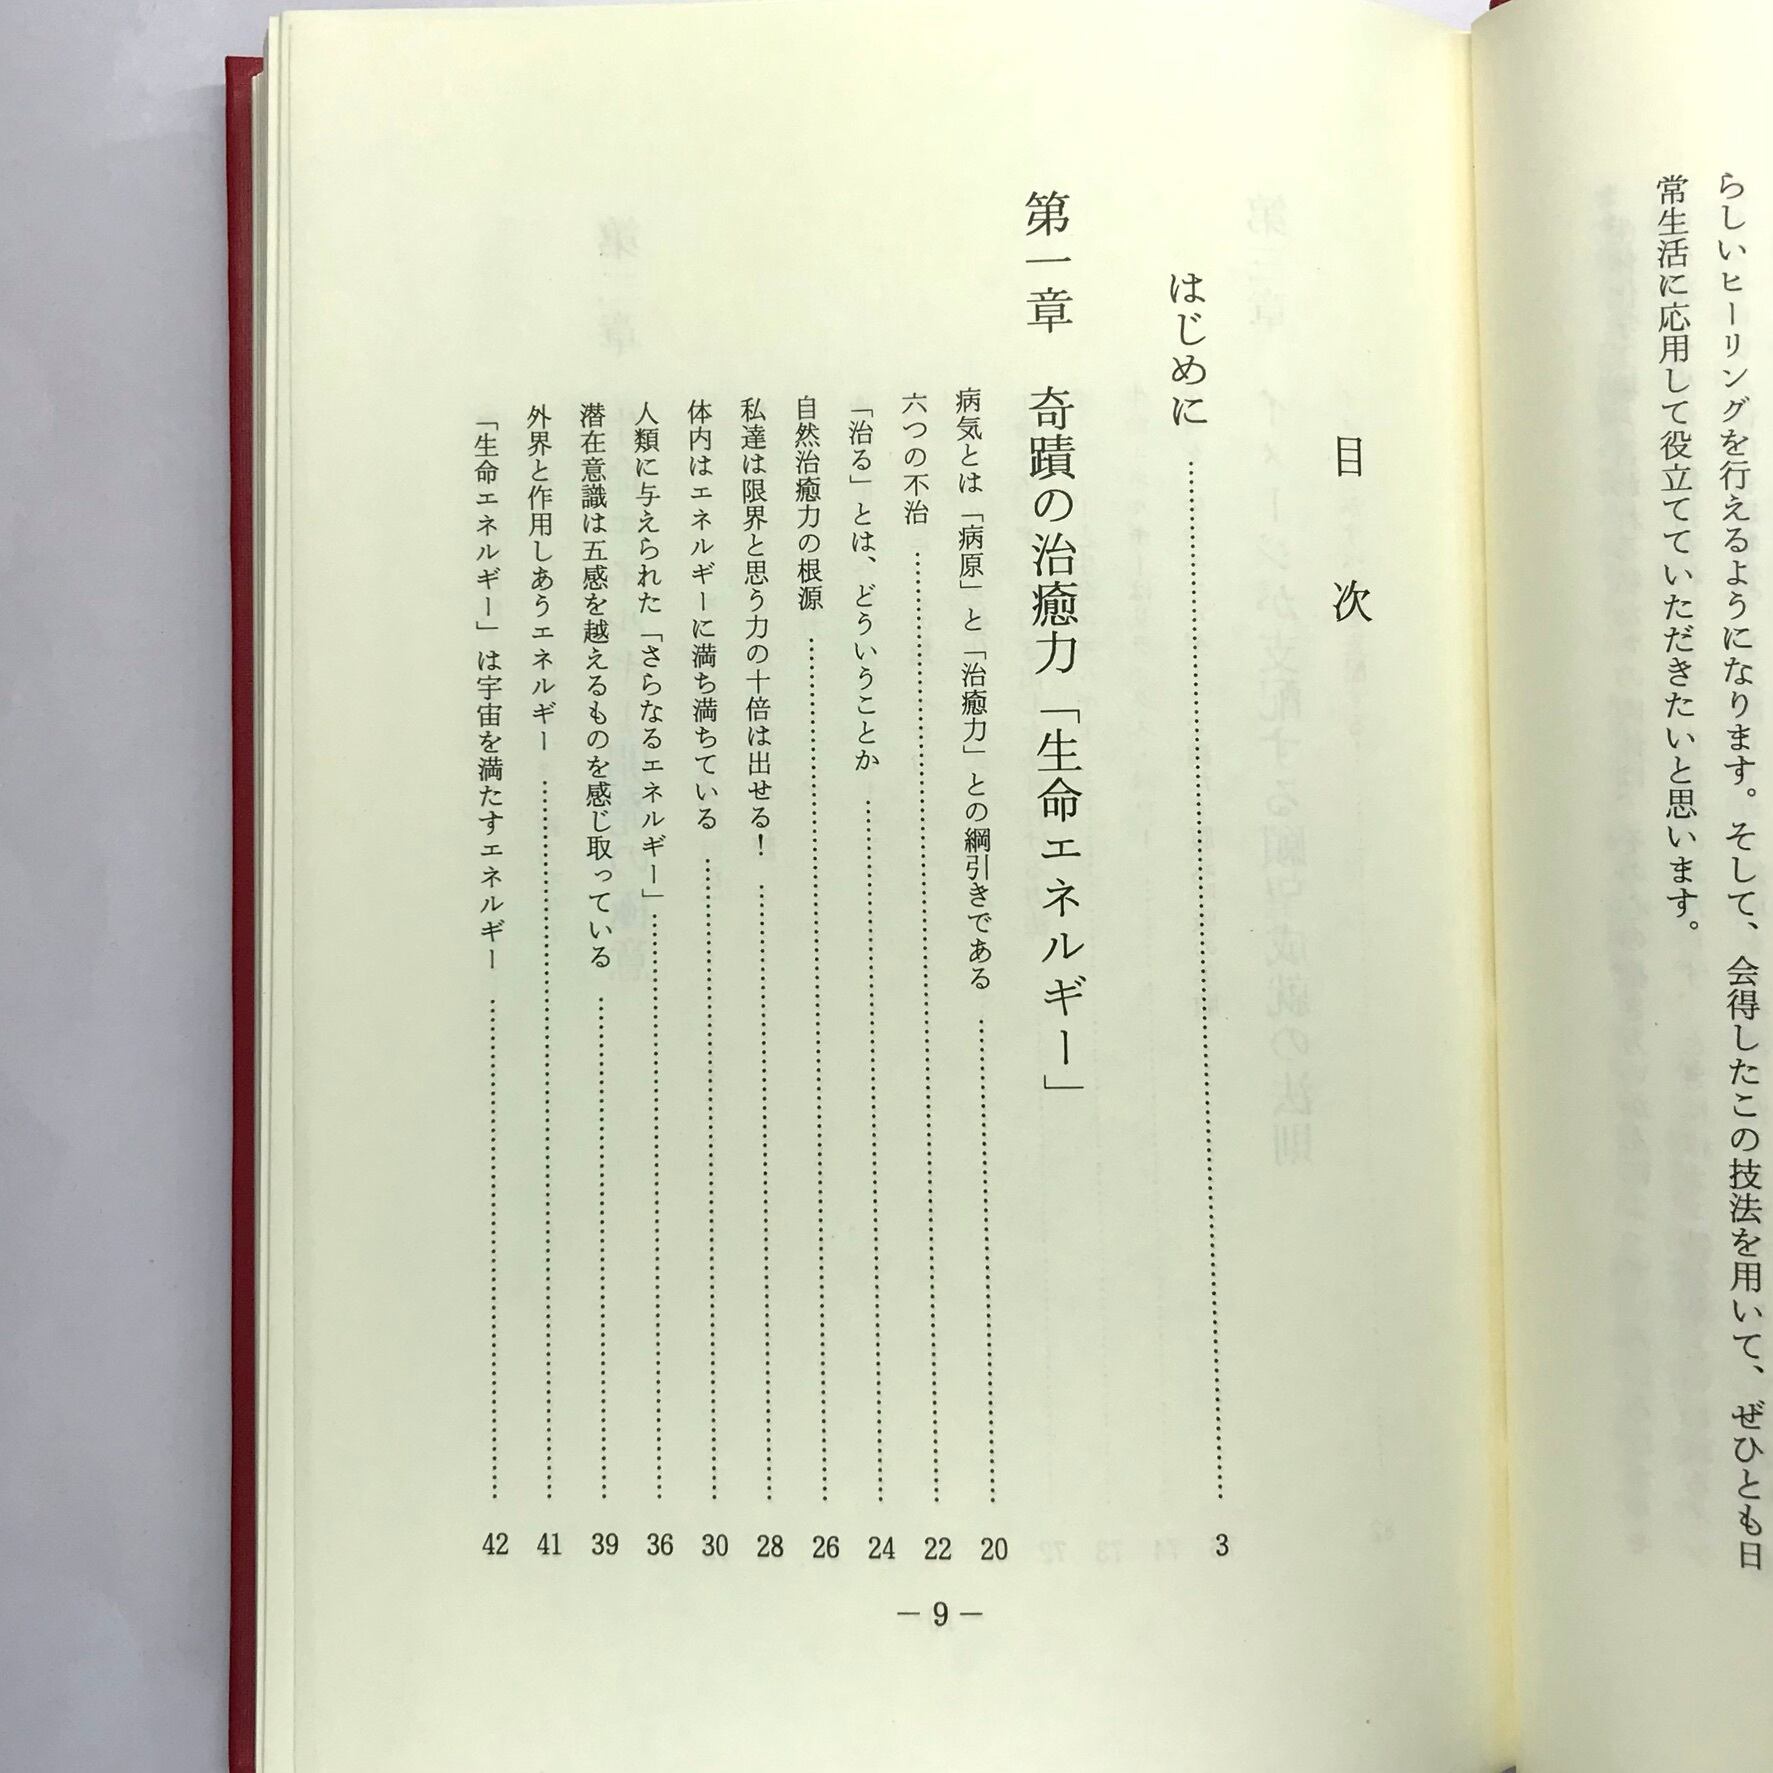 らしいヒーリングを行えるようになります。そして、会得したこの技法を用いて、ぜひとも日
常生活に応用して役立てていただきたいと思います。
目次
はじめに……3
第一章 奇蹟の治癒力「生命エネルギー」
病気とは「病原」と「治癒力」との綱引きである……20
六つの不治……22
「治る」とは、どういうことか……24
自然治癒力の根源……26
私達は限界と思う力の十倍は出せる!……28
体内はエネルギーに満ち満ちている……30
人類に与えられた「さらなるエネルギー」……36
潜在意識は五感を越えるものを感じ取っている……39
外界と作用しあうエネルギー……41
「生命エネルギー」は宇宙を満たすエネルギー……42
— 9 —